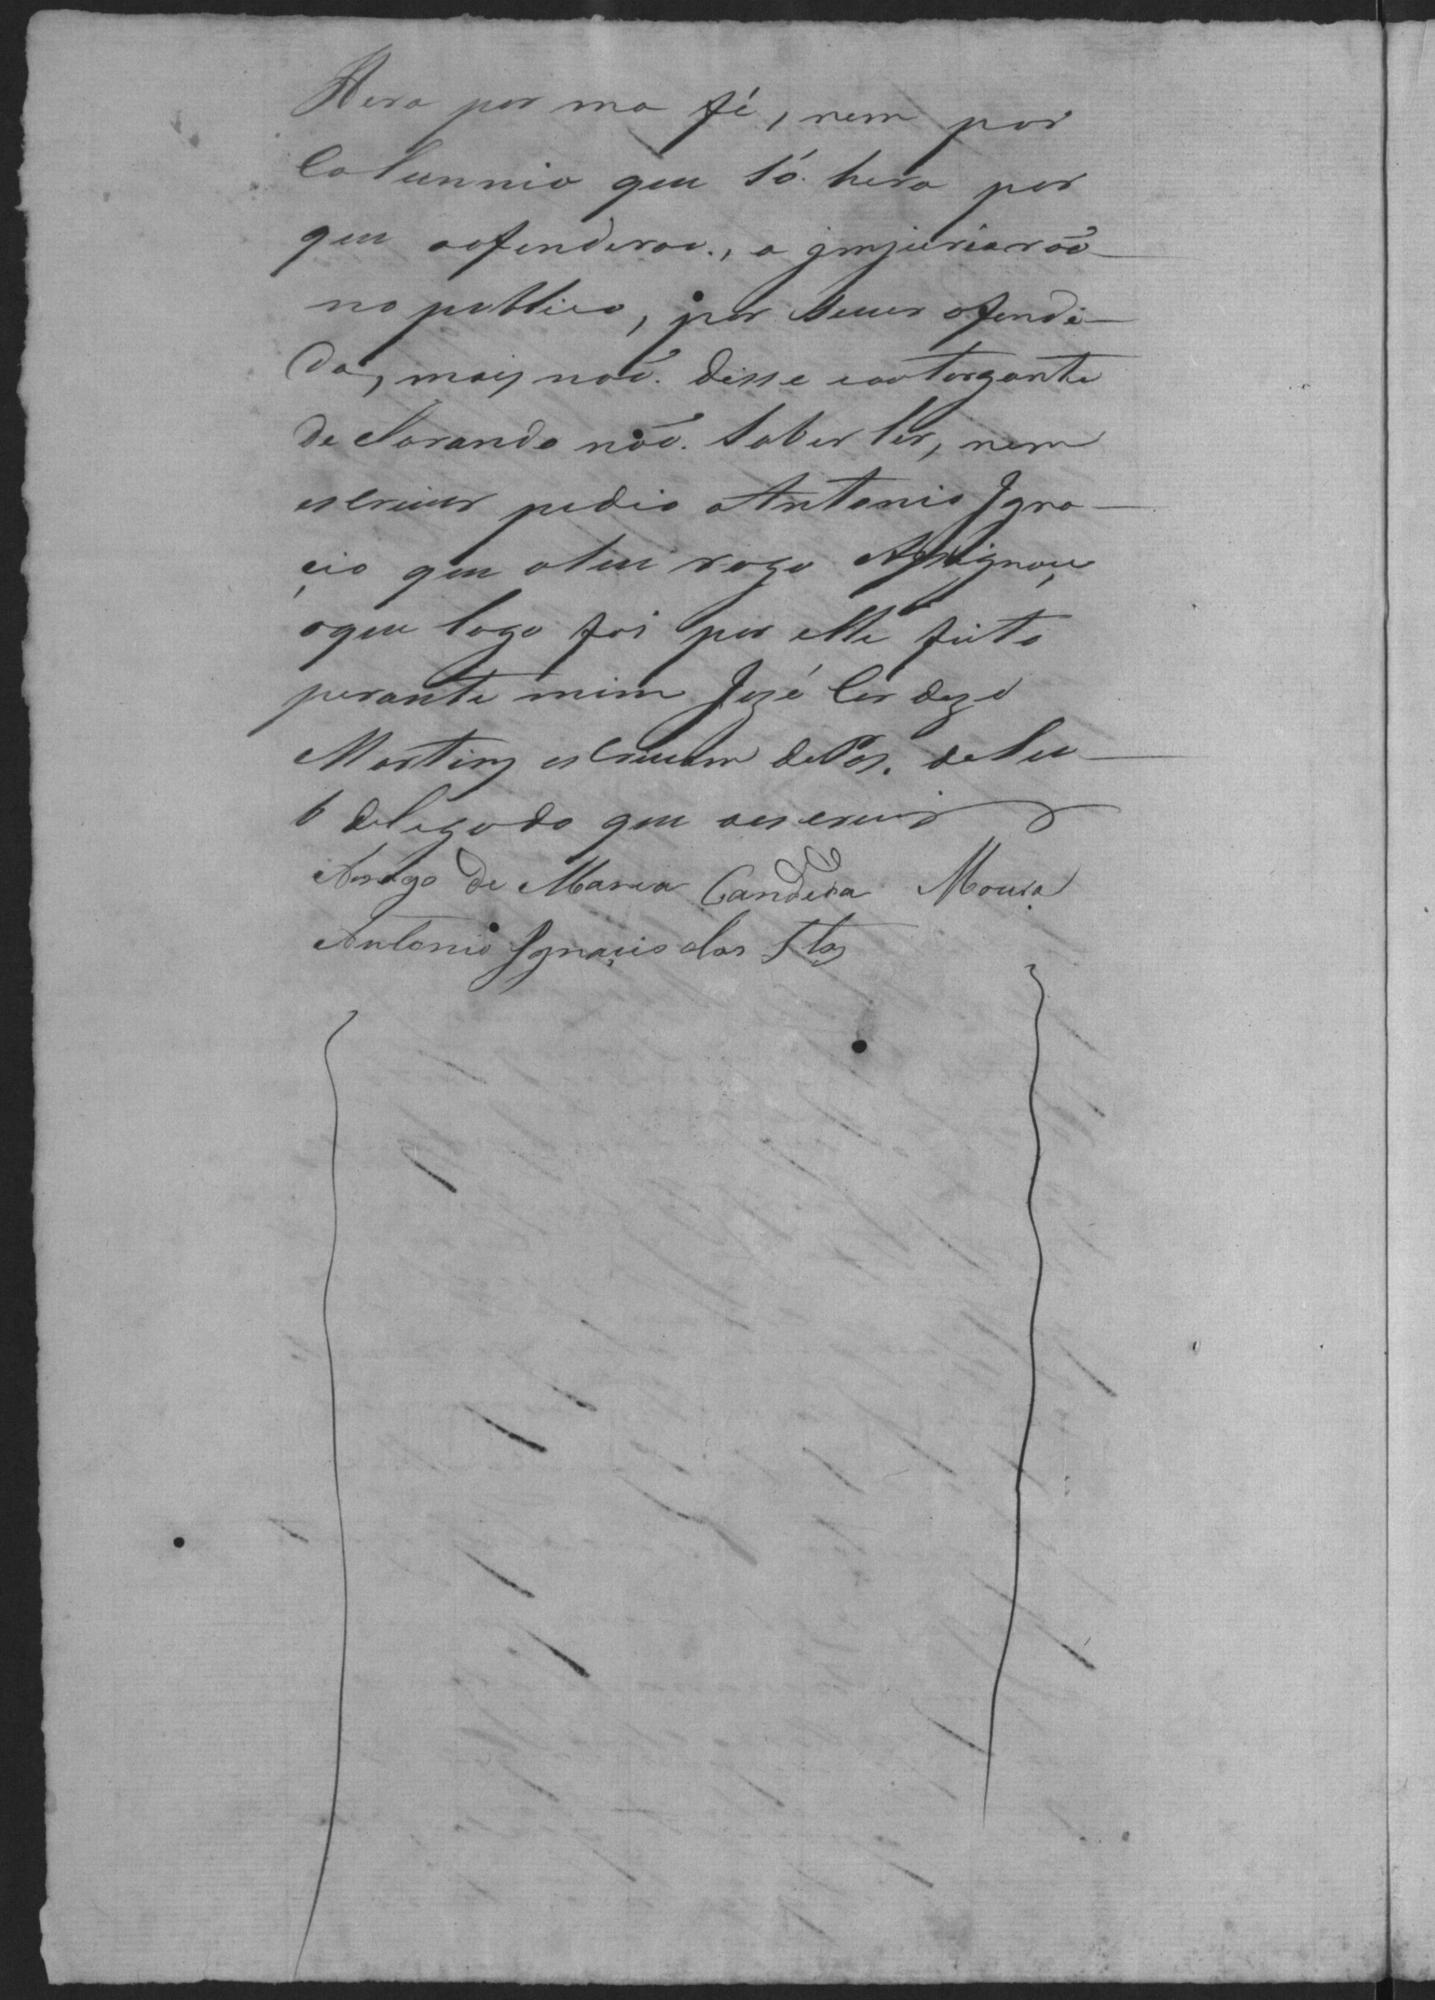 Hera por ma fé, nem por
Calunnia que só hera por
que aofenderaõ., e jmjuriaraõ
no publico, por seuer ofendi-
da, mais naõ. disse eaotorgante
declarando naõ. saber ler, nem
escriuer pedio a Antonio Igna-
cio que aseu rogo Assignou,
oque logo foi por elle feito
perante mim José
Martins escriuam de Pas. desu-
b delegado que aescriui
Arogo de Maria Candida Moura
Antonio Ignacio dos Stos